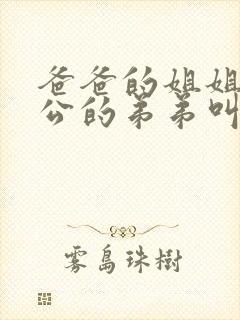 爸爸的姐姐
公的弟弟叫
雾岛珠樹